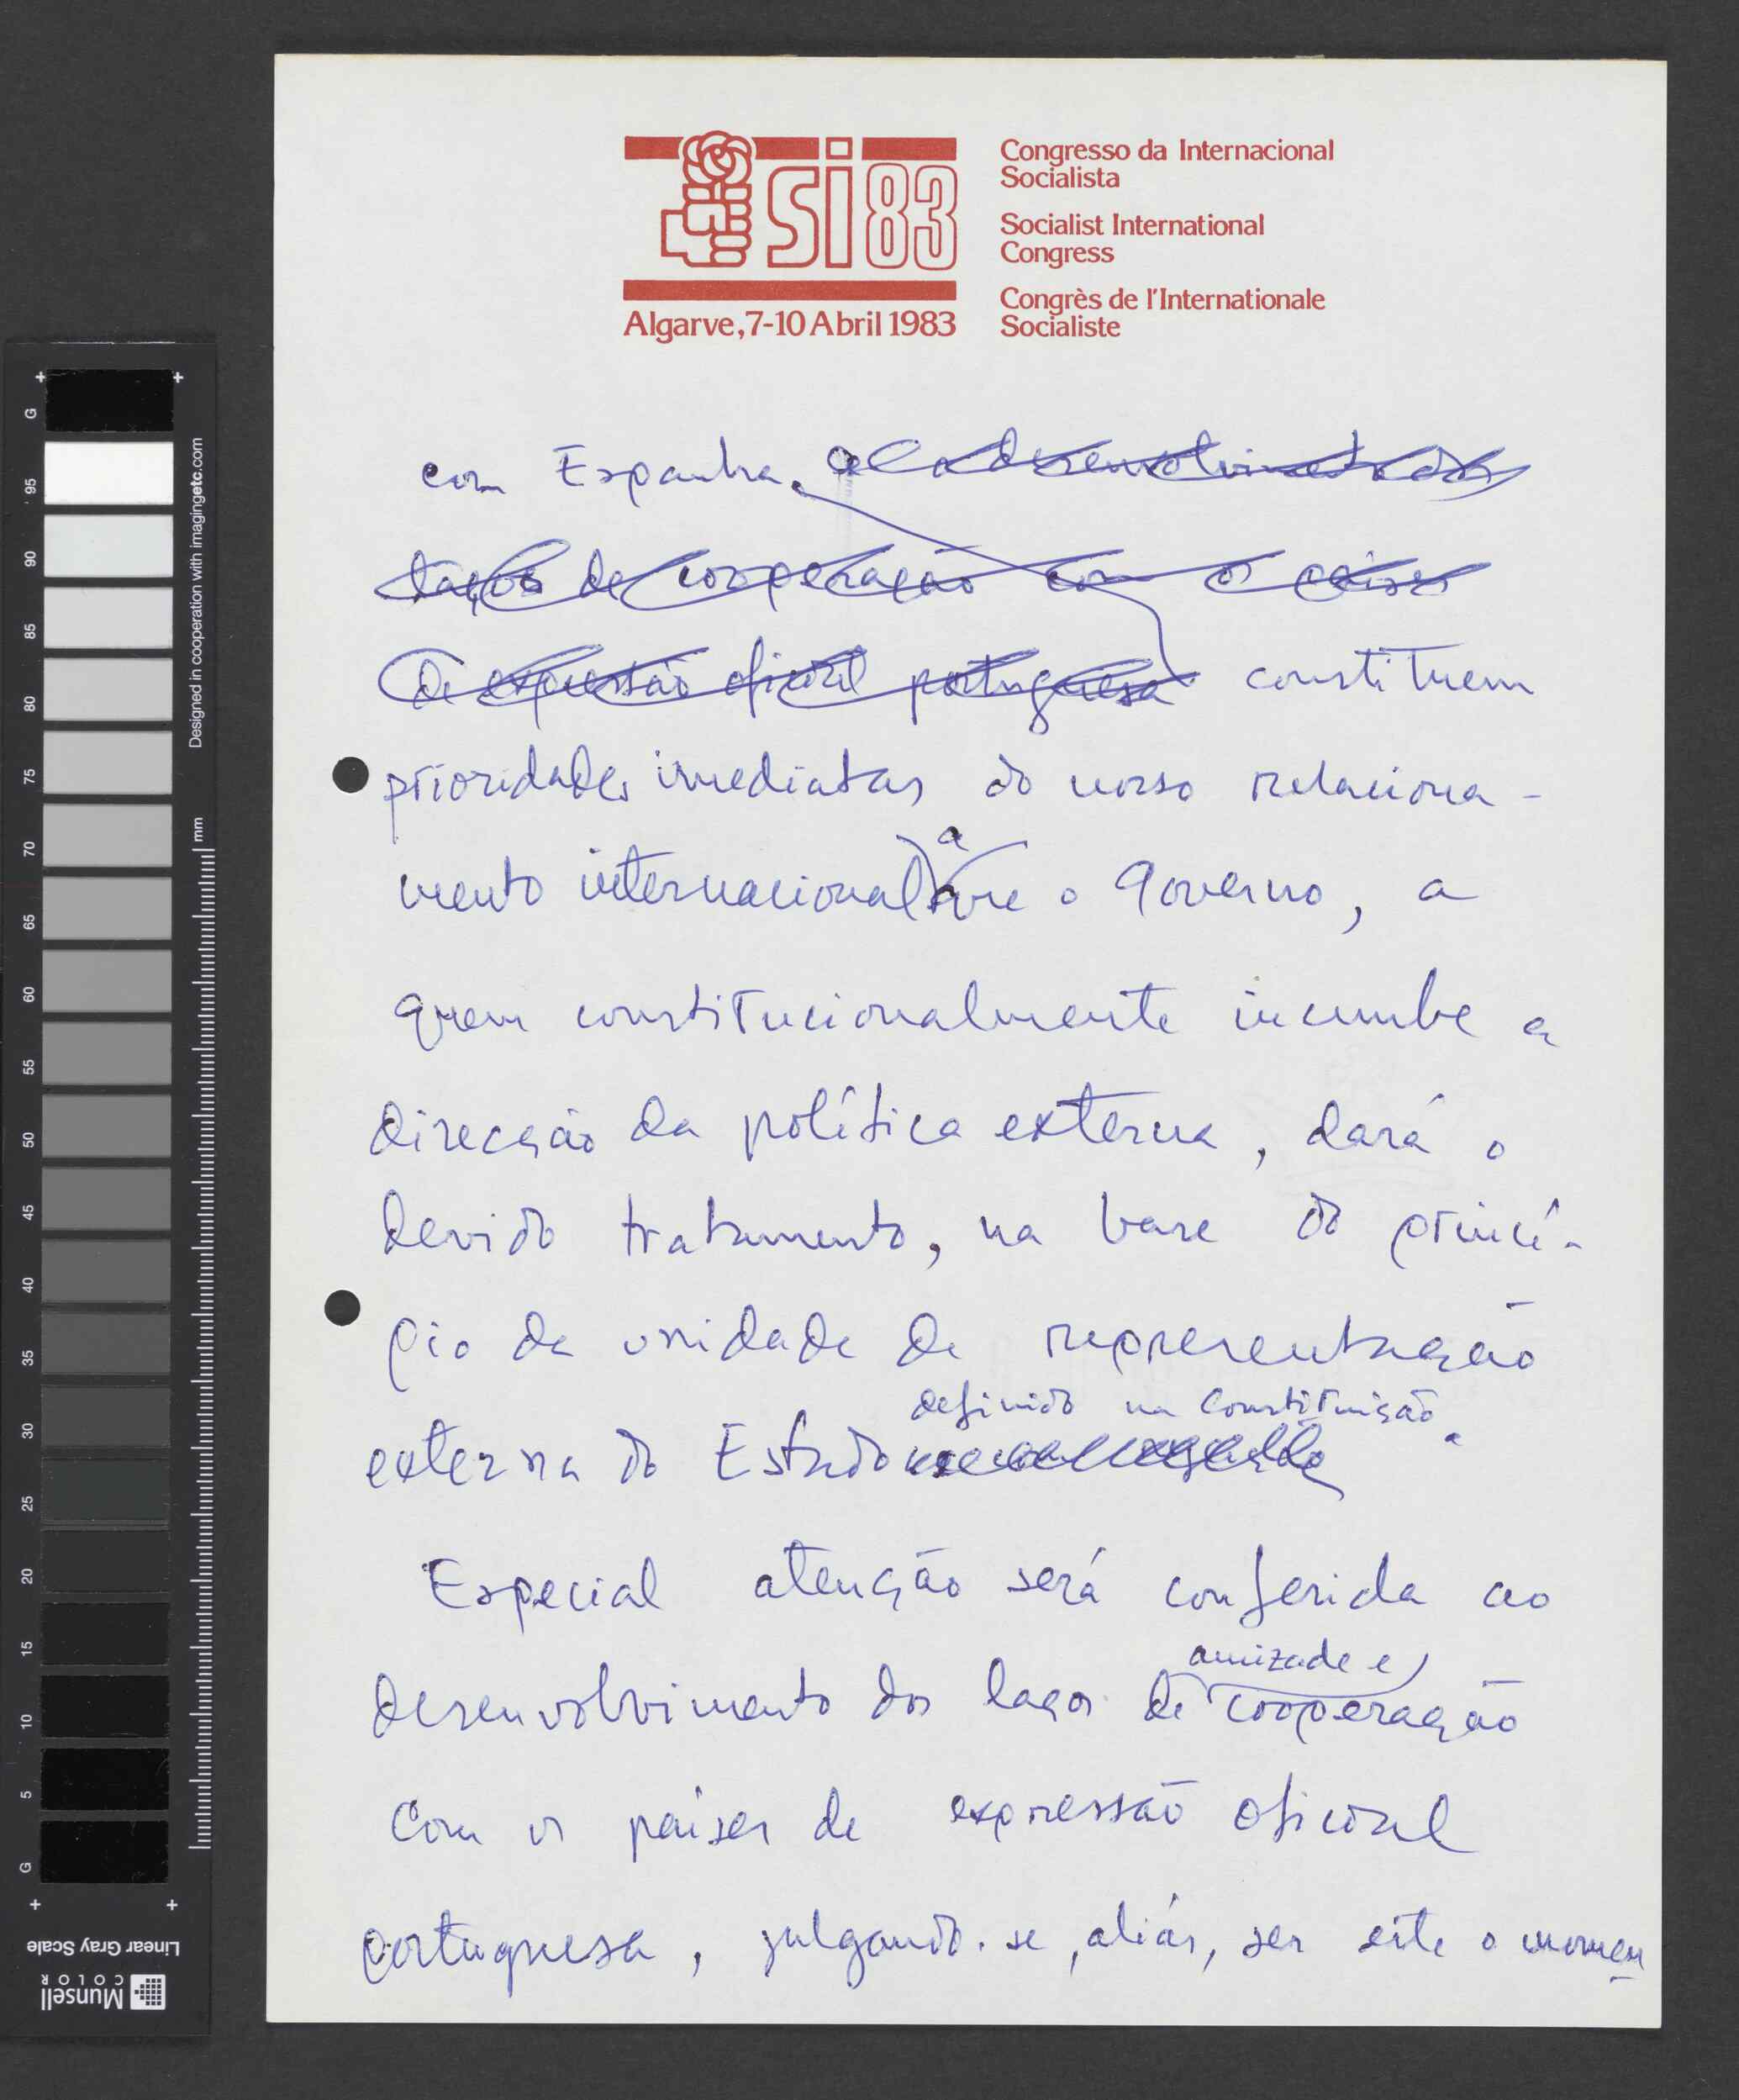 si 83
Algarve, 7-10 Abril 1983
Congresso da Internacional
Socialista
Socialist International
Congress
Congrès de l'Internationale
Socialiste
com Espanha, e o desenvolvimento dos
laços de cooperação com os países
de expressão oficial portuguesa constituem
prioridades imediatas do nosso relaciona-
mento internacional a
que o Governo, a
quem constitucionalmente incumbe a
direcção da política externa, dará o
devido tratamento, na base do princí-
pio da unidade de representação
definido na Constituição.
externa do Estado
Especial atenção será conferida ao
amizade e
desenvolvimento dos laços de cooperação
com os países de expressão oficial
portuguesa, julgando-se, aliás, ser este o momen
G 95 90 85 80 75 70 65 60 55 50 45 40 35 30 25 20 15 10 5 G
Designed in cooperation with imagingetc.com
mm
Linear Gray Scale
Munsell
COLOR